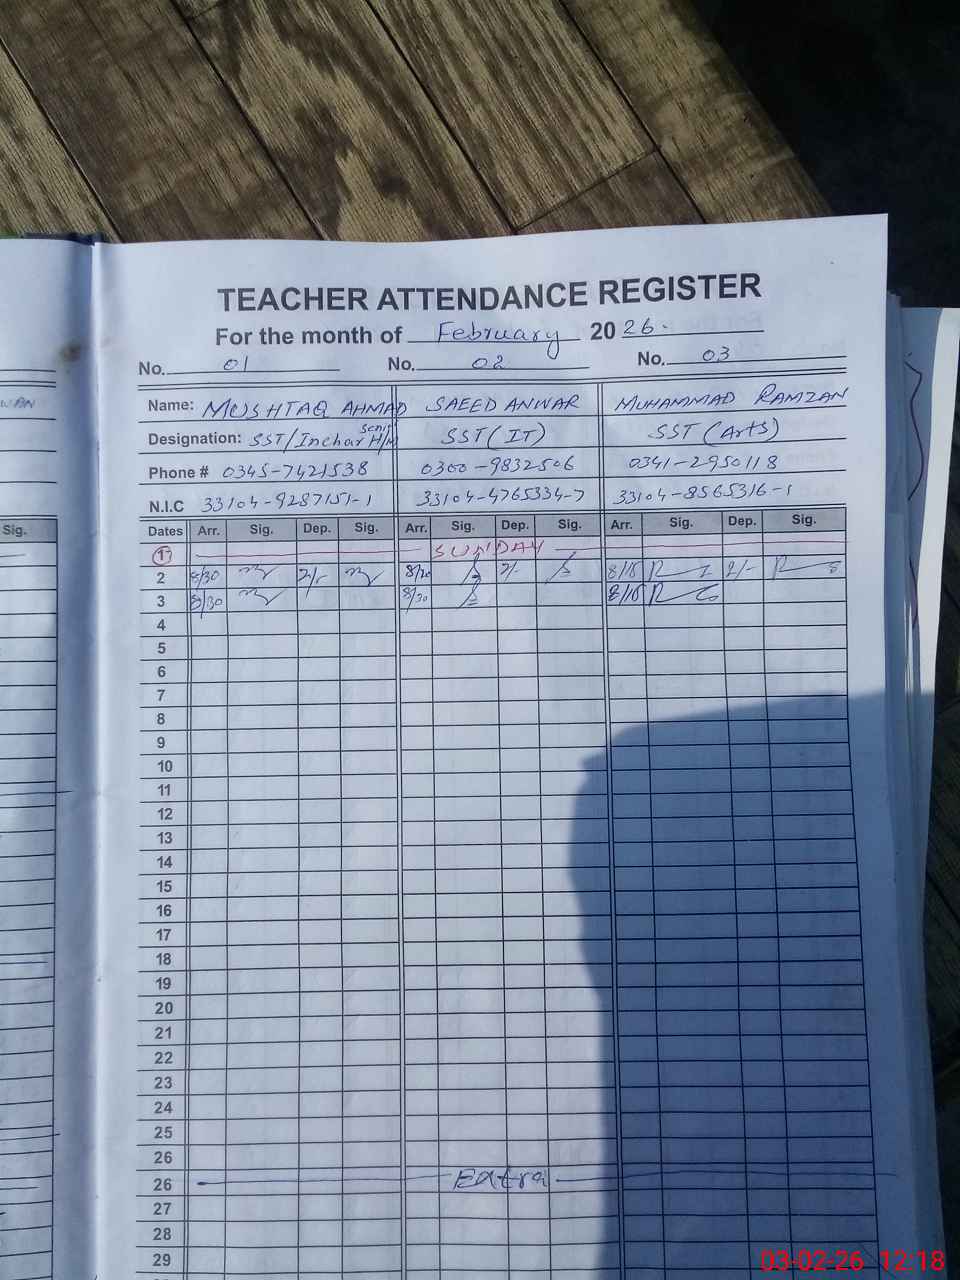 TEACHER ATTENDANCE REGISTER
For the month of February 2026.
No. 01 No. 02 No. 03
WAN
Name: MUSHTAQ AHMAD SAEED ANWAR MUHAMMAD RAMZAN
Designation: SST/Inchar H/M SST (IT) SST (Arts)
Phone # 0345-7421538 0300-9832506 0341-2950118
N.I.C 33104-9287151-1 33104-4765334-7 33104-8565316-1
Sig. Dates Arr. Sig. Dep. Sig. Arr. Sig. Dep. Sig. Arr. Sig. Dep. Sig.
1 SUNDAY
2 8/30 2/- 2/- 8/15 2/-
3 8/30 8/30 8/15
4
5
6
7
8
9
10
11
12
13
14
15
16
17
18
19
20
21
22
23
24
25
26
26 Extra
27
28
29
03-02-26 12:18